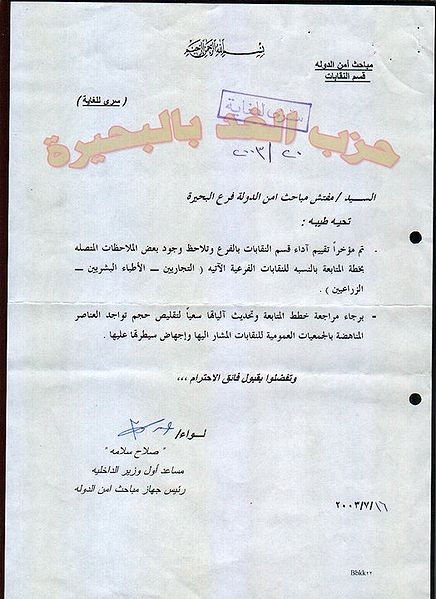 بسم الله الرحمن الرحيم
مباحث أمن الدوله
قسم النقابات
( سرى للغاية )
سرى للغاية
حزب الغد بالبحيرة
السيد / مفتش مباحث امن الدولة فرع البحيرة
تحيه طيبه :
. تم مؤخراً تقييم آداء قسم النقابات بالفرع وتلاحظ وجود بعض الملاحظات المتصله
بخطة المتابعة بالنسبه للنقابات الفرعية الآتيه ( التجاريين – الأطباء البشريين –
الزراعيين ) .
- برجاء مراجعة خطط المتابعة وتحديث آلياتها سعياً لتقليص حجم تواجد العناصر
المناهضة بالجمعيات العمومية للنقابات المشار اليها وإجهاض سيطرتها عليها .
وتفضلوا بقبول فائق الاحترام ,,,
لـــواء/
" صلاح سلامه "
مساعد أول وزير الداخليه
رئيس جهاز مباحث امن الدوله
٢٠٠٣/٧/١٦
Bbkk٢٢